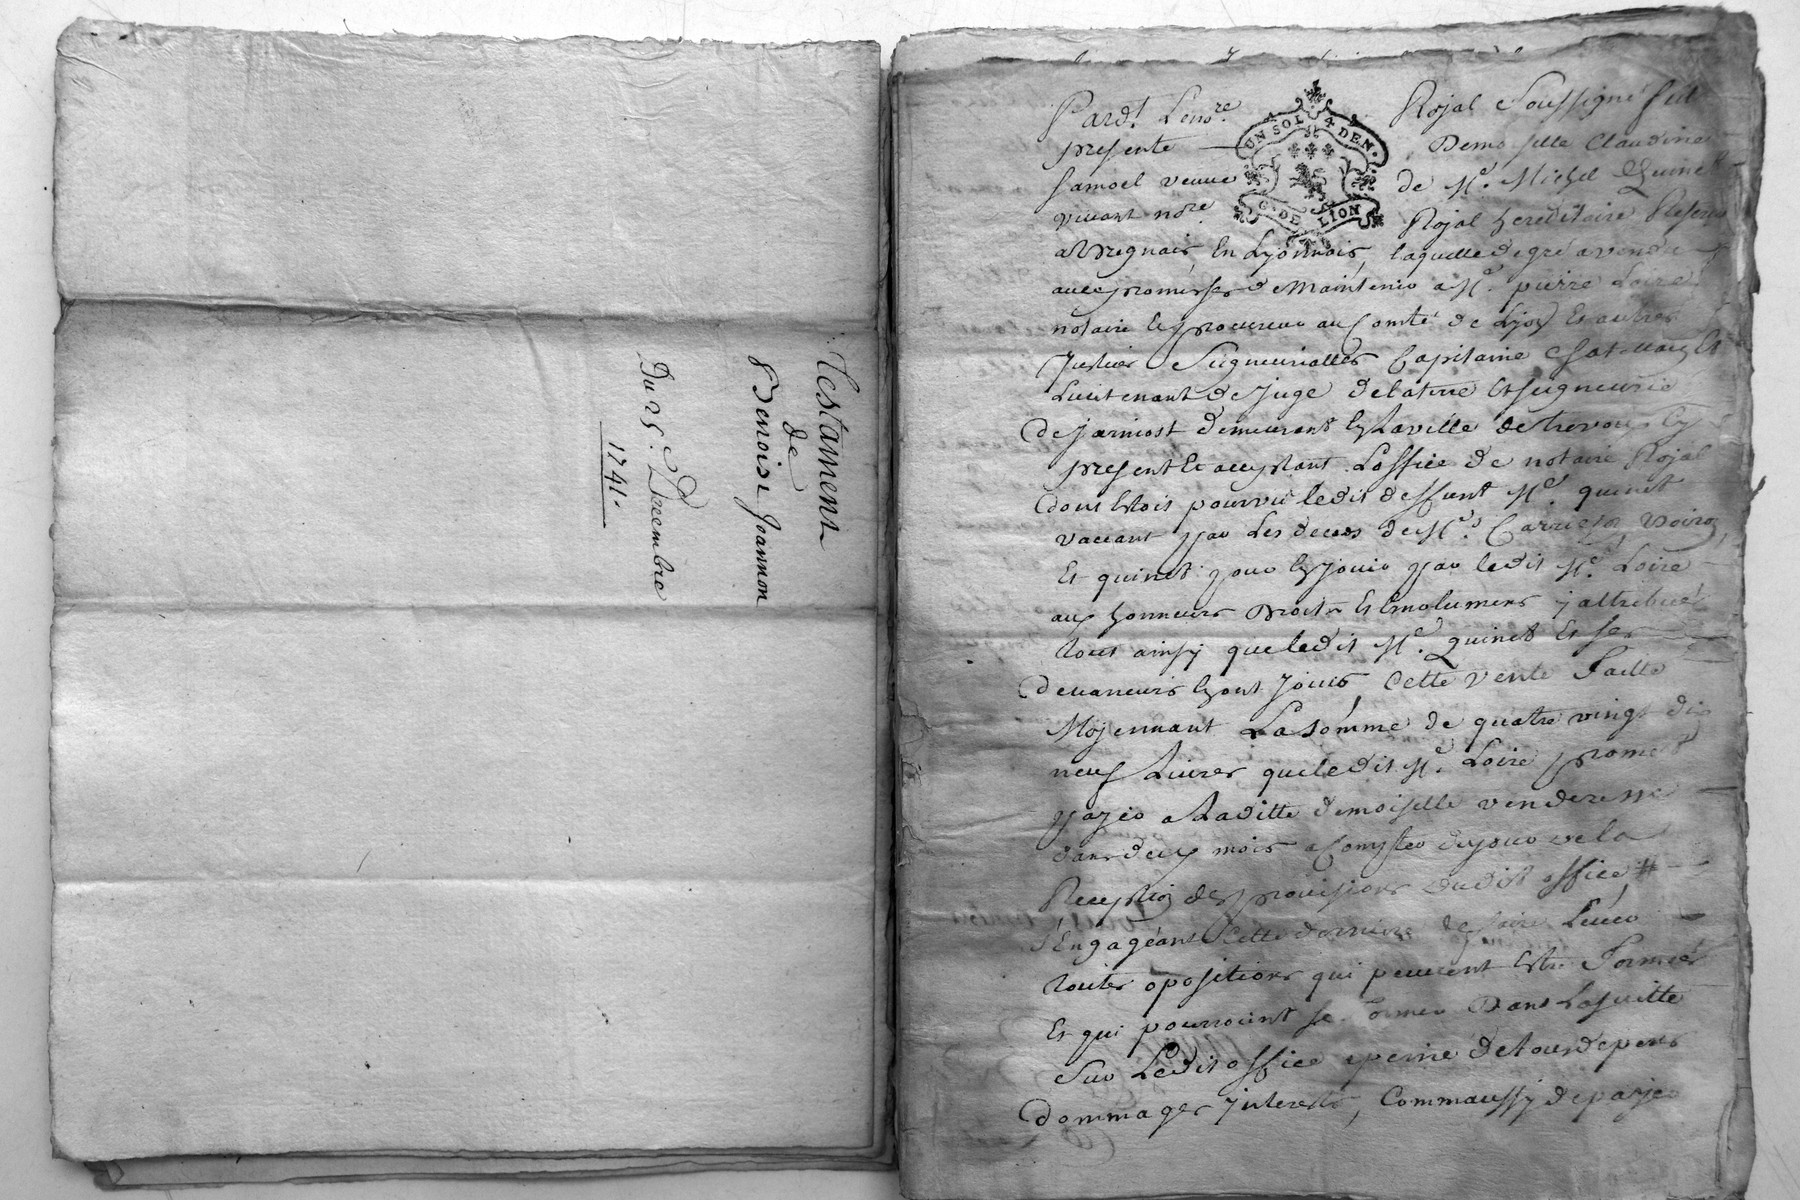 Testament
de
Benoise Joannon
Du 25e Decembre
1741
UN SOL 4 DEN.
G. DE LION
Pard.t Le nore Royal Soussigné fut
presente Demoiselle Claudine
Samoel veuve de Me. Michel Quinet
vivant nore Royal hereditaire Reservé
a Bregnais, En Lyonnois, laquelle de gré a vendu
avec promesses de Maintenir a Me. pierre Loire
notaire Et procureur au Comté de Lyon Et autres
Justices Seigneurialles Capitaine Chatelain Et
Lieutenant de Juge de la terre Et seigneurie
de jarniost demeurant En La ville de trevoux Cy
present Et acceptant L'office de notaire Royal
dont Etois pourvu ledit deffunt Me. quinet
vaccant par Les deces de Mes. Voiron,
Et quinet pour En jouir par ledit Me. Loire
aux honneurs Droits Et Emolumens y attribués
tout ainsy que ledit Me. quinet Et ses
devanciers En ont Jouis, Cette vente Faitte
Moyennant La somme de quatre vingt dix
neuf Livres que ledit Me. Loire promet
payer a Laditte demoiselle venderesse
dans deux mois a Compter du jour de la
Reception des provisions dudit office, #
s'Engageant Cette derniere de faire Lever
toutes opositions qui peuvent Estre Formées
Et qui pourroient se former Dans La suitte
Sur Ledit office a peine de tous depens
dommages Interests, Comm'aussy de payer